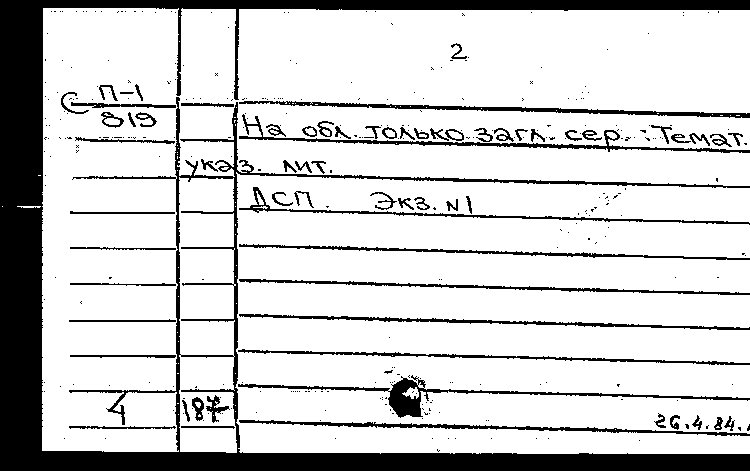 2
П-1
С 819
На обл. только загл. сер.: Темат.
указ. лит.
ДСП. Экз. №1
4 187
26.4.84.